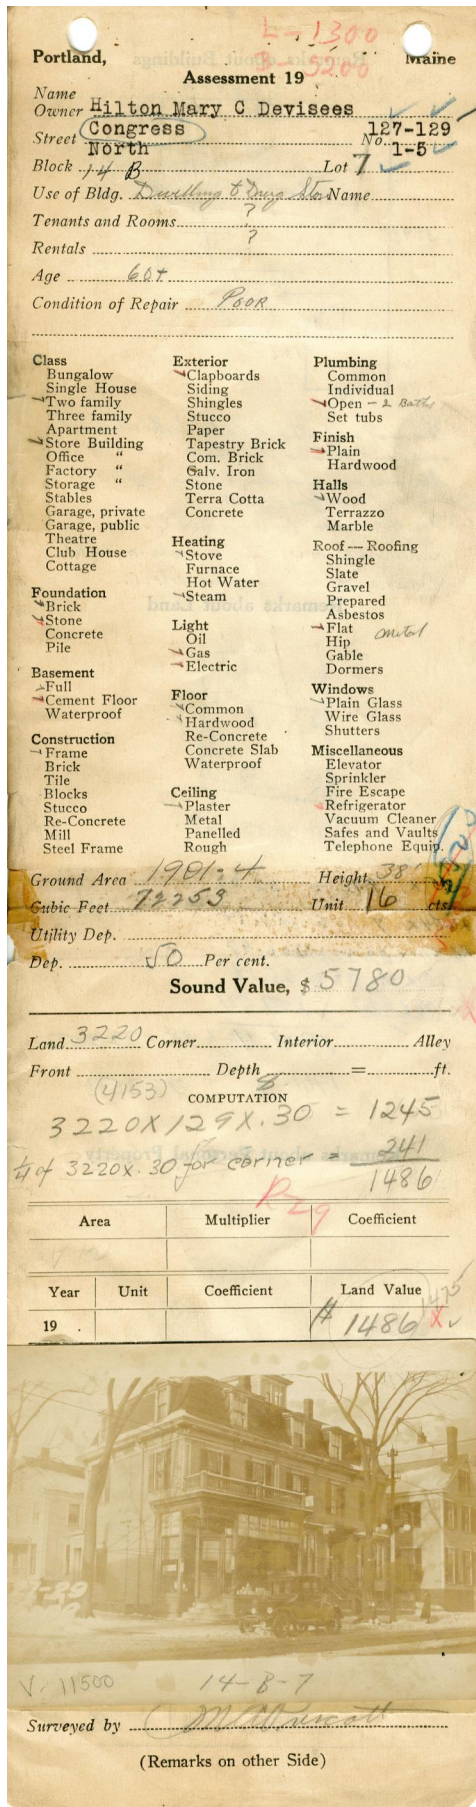 L-1300
Portland, Maine
B-5200
Assessment 19
Name
Owner Hilton Mary C Devisees
Street Congress No. 127-129
North 1-5
Block 14 B Lot 7
Use of Bldg. Dwelling & Drug Sto Name
?
Tenants and Rooms
?
Rentals
Age 60+
Condition of Repair Poor
Class
Bungalow
Single House
Two family
Three family
Apartment
Store Building
Office "
Factory "
Storage "
Stables
Garage, private
Garage, public
Theatre
Club House
Cottage
Foundation
Brick
Stone
Concrete
Pile
Basement
Full
Cement Floor
Waterproof
Construction
Frame
Brick
Tile
Blocks
Stucco
Re-Concrete
Mill
Steel Frame
Exterior
Clapboards
Siding
Shingles
Stucco
Paper
Tapestry Brick
Com. Brick
Galv. Iron
Stone
Terra Cotta
Concrete
Heating
Stove
Furnace
Hot Water
Steam
Light
Oil
Gas
Electric
Floor
Common
Hardwood
Re-Concrete
Concrete Slab
Waterproof
Ceiling
Plaster
Metal
Panelled
Rough
Plumbing
Common
Individual
Open - 2 Baths
Set tubs
Finish
Plain
Hardwood
Halls
Wood
Terrazzo
Marble
Roof — Roofing
Shingle
Slate
Gravel
Prepared
Asbestos
Flat metal
Hip
Gable
Dormers
Windows
Plain Glass
Wire Glass
Shutters
Miscellaneous
Elevator
Sprinkler
Fire Escape
Refrigerator
Vacuum Cleaner
Safes and Vaults
Telephone Equip.
Ground Area 1901.4 Height 38'
Cubic Feet 72253 Unit 16 cts.
Utility Dep.
Dep. 50 Per cent.
Sound Value, $ 5780
Land 3220 Corner Interior Alley
Front Depth = ft.
(4153)
COMPUTATION
3220 X 129 X .30 = 1245
1/4 of 3220 x .30 for corner = 241
1486
R-29
Area Multiplier Coefficient
Year Unit Coefficient Land Value
1475
19 . # 1486 X
V. 11500 14-B-7
Surveyed by
(Remarks on other Side)